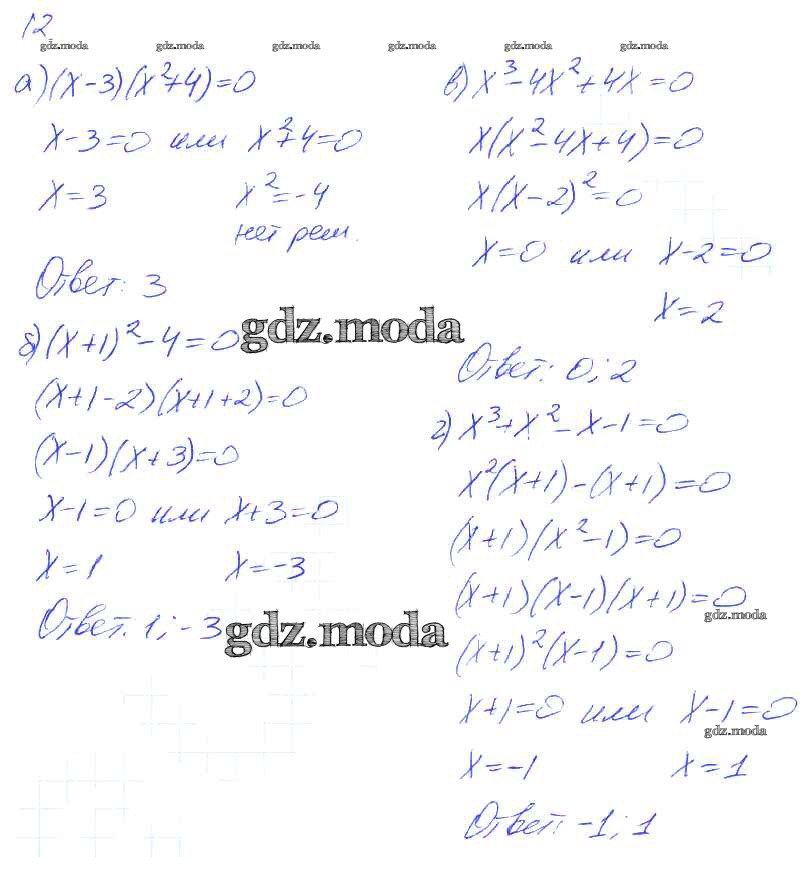 12
gdz.moda gdz.moda gdz.moda gdz.moda gdz.moda gdz.moda
а) (x-3)(x²+4)=0
x-3=0 или x²+4=0
x=3 x²=-4
нет реш.
Ответ: 3
б) (x+1)²-4=0
gdz.moda
(x+1-2)(x+1+2)=0
(x-1)(x+3)=0
x-1=0 или x+3=0
x=1 x=-3
Ответ: 1; -3
gdz.moda
в) x³-4x²+4x=0
x(x²-4x+4)=0
x(x-2)²=0
x=0 или x-2=0
x=2
Ответ: 0; 2
г) x³+x²-x-1=0
x²(x+1)-(x+1)=0
(x+1)(x²-1)=0
(x+1)(x-1)(x+1)=0
gdz.moda
(x+1)²(x-1)=0
x+1=0 или x-1=0
gdz.moda
x=-1 x=1
Ответ: -1; 1